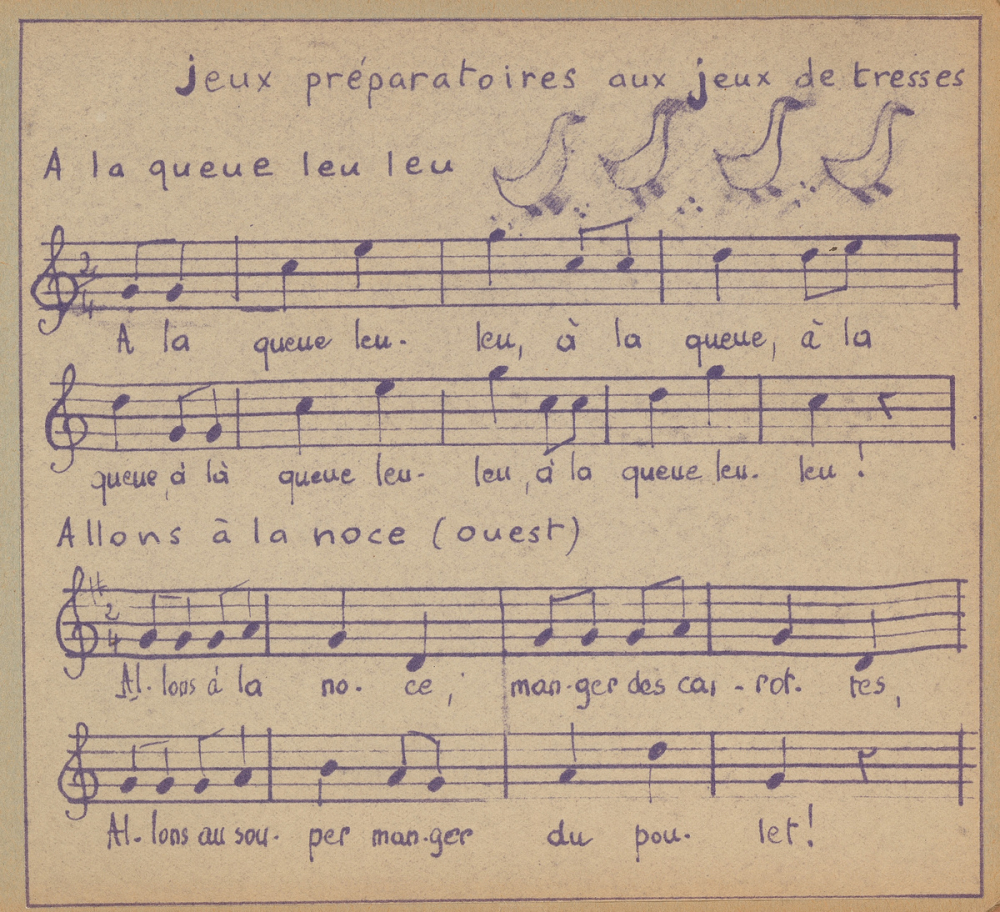 jeux préparatoires aux jeux de tresses
A la queue leu leu
2
4
A la queue leu- leu, à la queue, à la
queue, à là queue leu- leu, à la queue leu- leu !
Allons à la noce (ouest)
2
4
Al- lons à la no- ce, man-ger des car-rot- tes,
Al- lons au sou- per man-ger du pou- let !